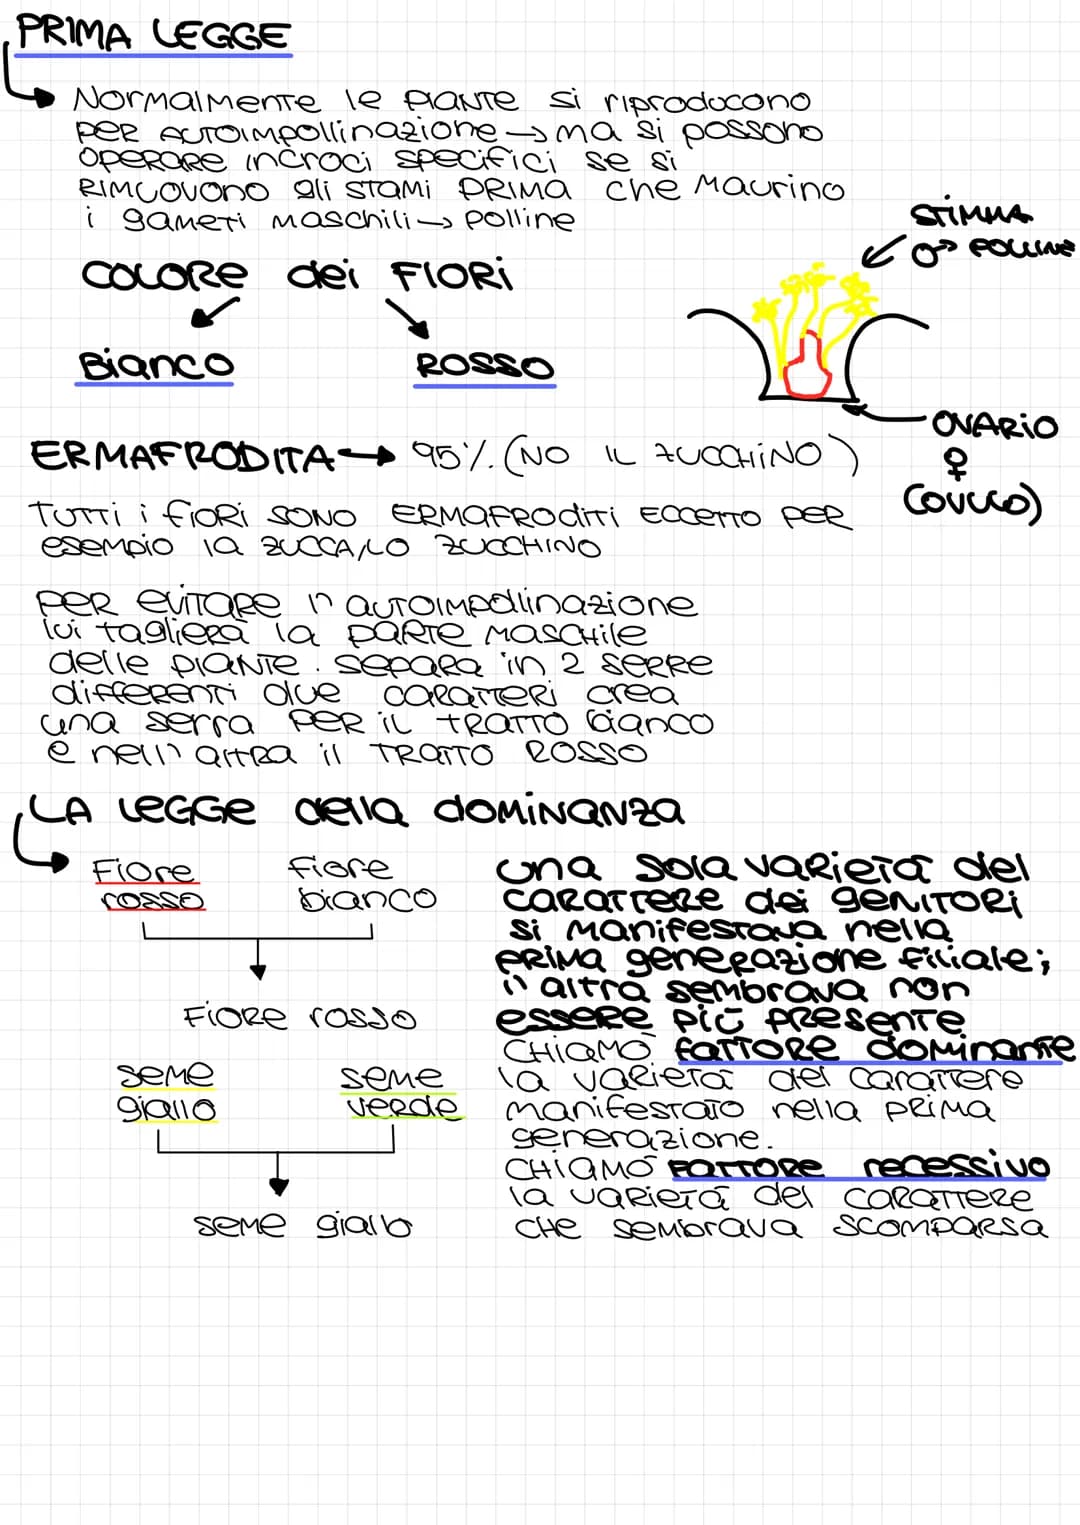 PRIMA LEGGE
Normalmente le piante si riproducono
per autoimpollinazione → ma si possono
operare incroci specifici se si
rimuovono gli stami prima che maurino
i gameti maschili → polline
STIMMA
♂ POLLINE
COLORE dei FIORI
Bianco
ROSSO
OVARIO
♀
(OVULO)
ERMAFRODITA → 95% (NO IL ZUCCHINO)
TUTTI i FIORI SONO ERMAFRODITI ECCETTO PER
esempio la ZUCCA, LO ZUCCHINO
PER evitare l'autoimpollinazione
lui taglierà la parte maschile
delle piante. separa in 2 serre
differenti due caratteri crea
una serra per il tratto bianco
e nell'altra il TRATTO ROSSO
LA LEGGE della dominanza
Fiore
rosso
fiore
bianco
Fiore rosso
seme
giallo
seme
verde
seme giallo
una sola varietà del
carattere dei genitori
si manifestava nella
prima generazione filiale;
l'altra sembrava non
essere più presente
CHIAMÒ fattore dominante
la varietà del carattere
manifestato nella prima
generazione.
CHIAMÒ FATTORE recessivo
la varietà del carattere
che sembrava scomparsa